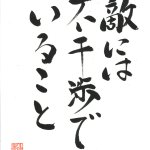 敵には
千歩で
いること